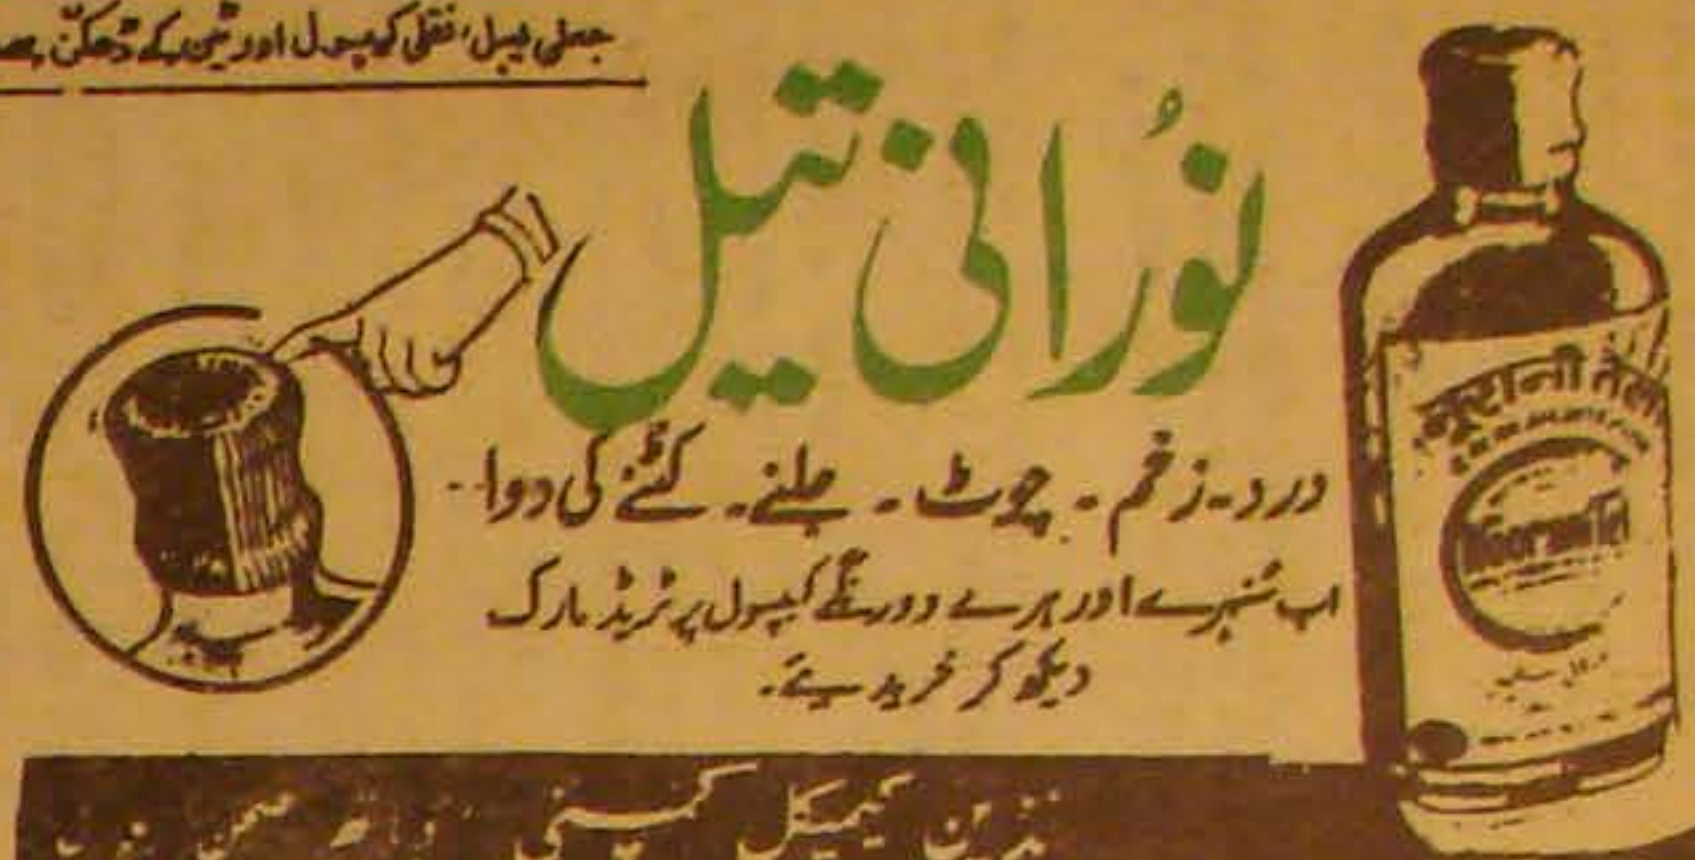 جعلی لیبل، نقلی کیپسول اور ٹین کے ڈھکن سے
نورانی تیل
درد ۔ زخم ۔ چوٹ ۔ جلنے ۔ کٹنے کی دوا ۔۔
اب سنہرے اور ہرے دو رنگے کیپسول پر ٹریڈ مارک
دیکھ کر خریدیئے۔
नूरानी तेल
انڈین کیمیکل کمپنی